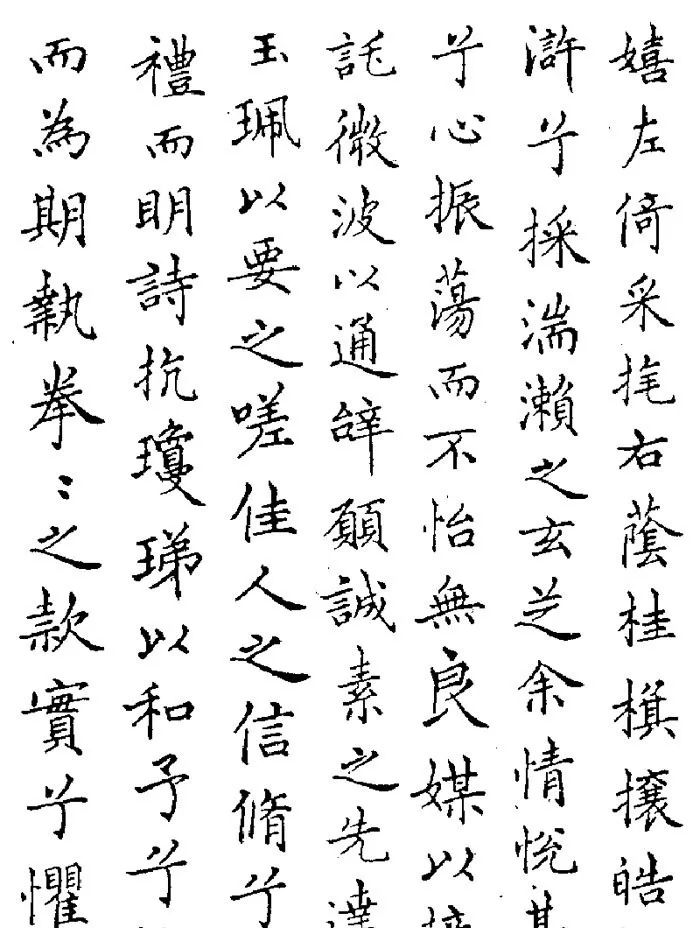 嬉左倚采旄右蔭桂旗攘皓
滸兮採湍瀨之玄芝余情悅其
兮心振蕩而不怡無良媒以接
託微波以通辭願誠素之先達
玉珮以要之嗟佳人之信脩兮
禮而明詩抗瓊珶以和予兮
而為期執拳〻之款實兮懼